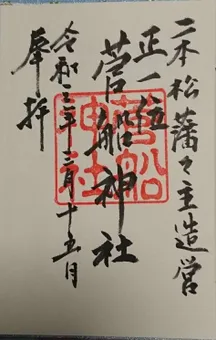 二本松藩々主造営
正一位
菅船神社
令和三年三月十五日
奉拝
菅船
神社